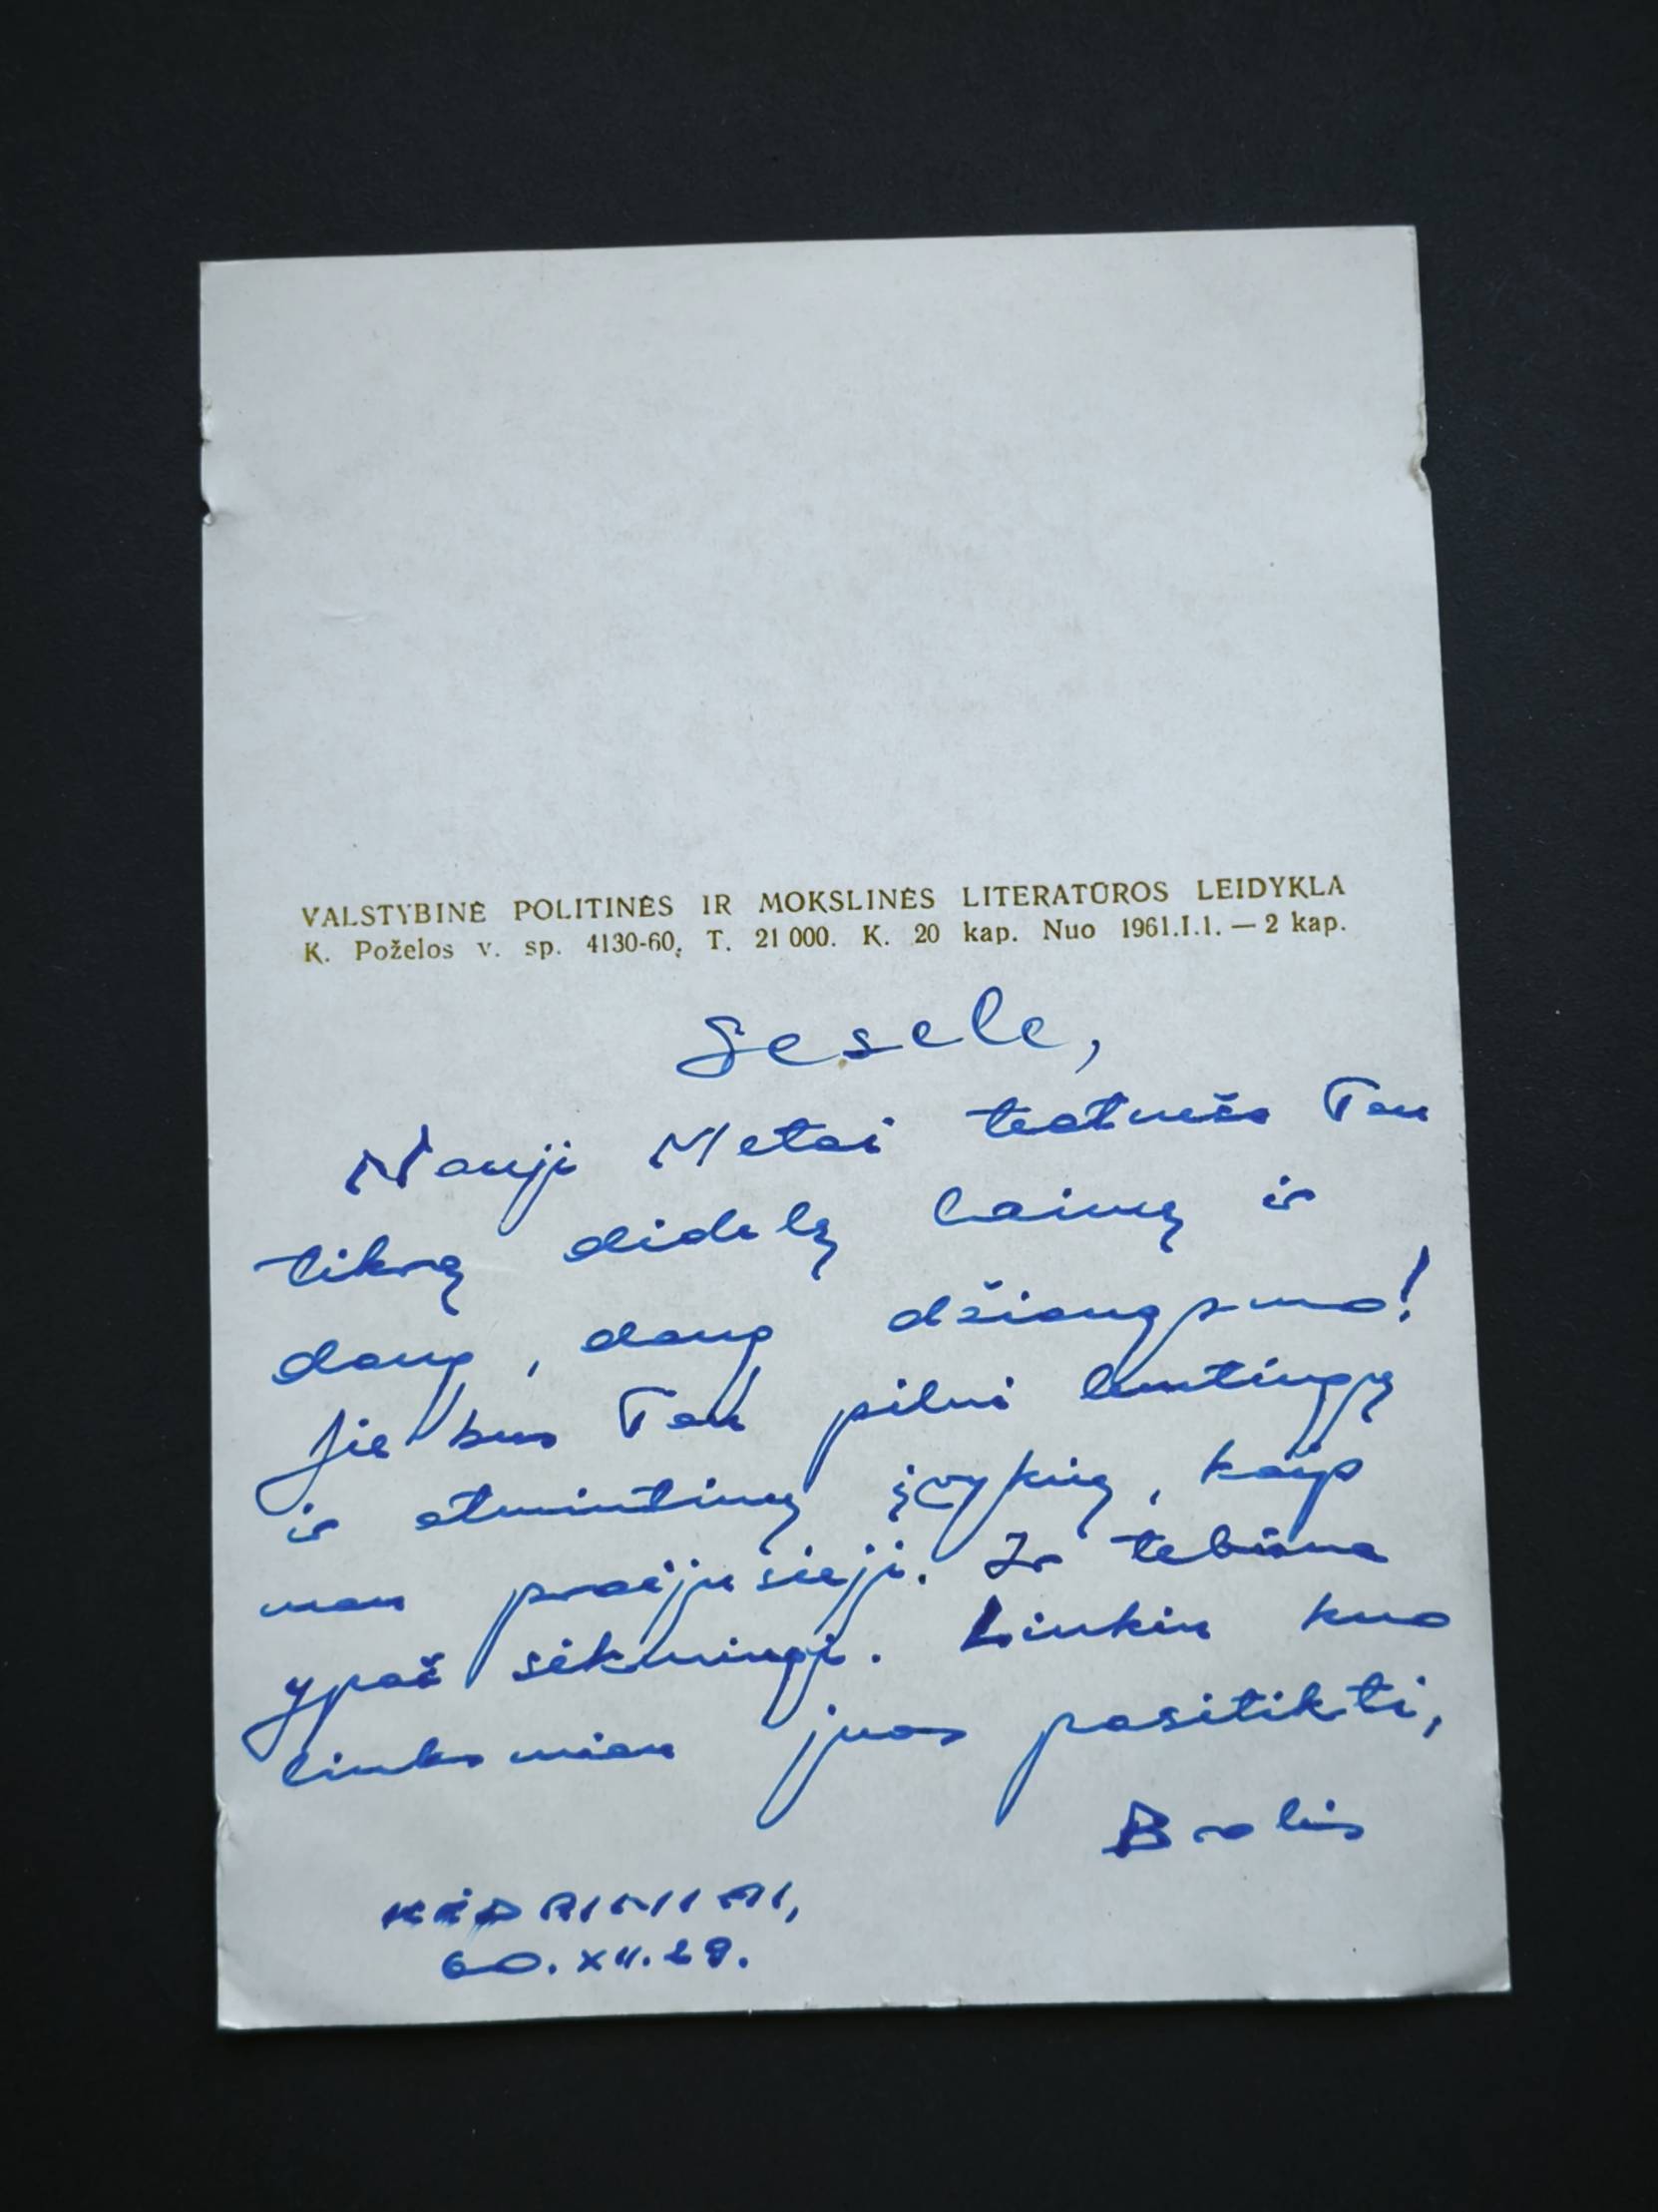 VALSTYBINĖ POLITINĖS IR MOKSLINĖS LITERATŪROS LEIDYKLA
K. Poželos v. sp. 4130-60, T. 21 000. K. 20 kap. Nuo 1961.I.1. — 2 kap.
Sesele,
Nauji Metai teatneša Tau
tikrą didelę laimę ir
daug, daug džiaugsmo!
Jie bus Tau pilni lemtingų
ir atmintinų įvykių, kaip
man praėjusieji. Ir tebūna
ypač sėkmingi. Linkiu kuo
linksmiau juos pasitikti,
Brolis
KĖDAINIAI,
60.XII.29.